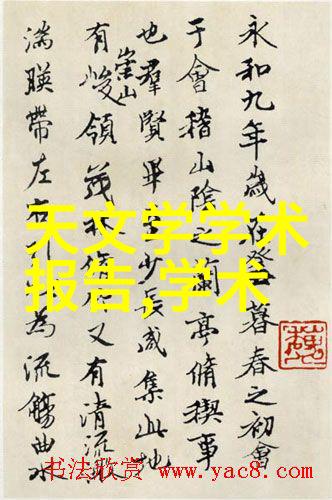 永和九年歲在癸暮春之初會
于會稽山陰之蘭亭脩稧事
也羣賢畢至少長咸集此地
有崇山峻領茂林脩竹又有清流激
湍暎帶左右引為流觴曲水
天文学学术
报告,学术
书法欣赏 www.yac8.com